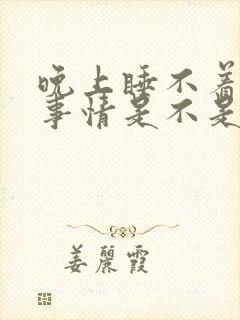 晚上睡不着
事情是不是
姜丽霞